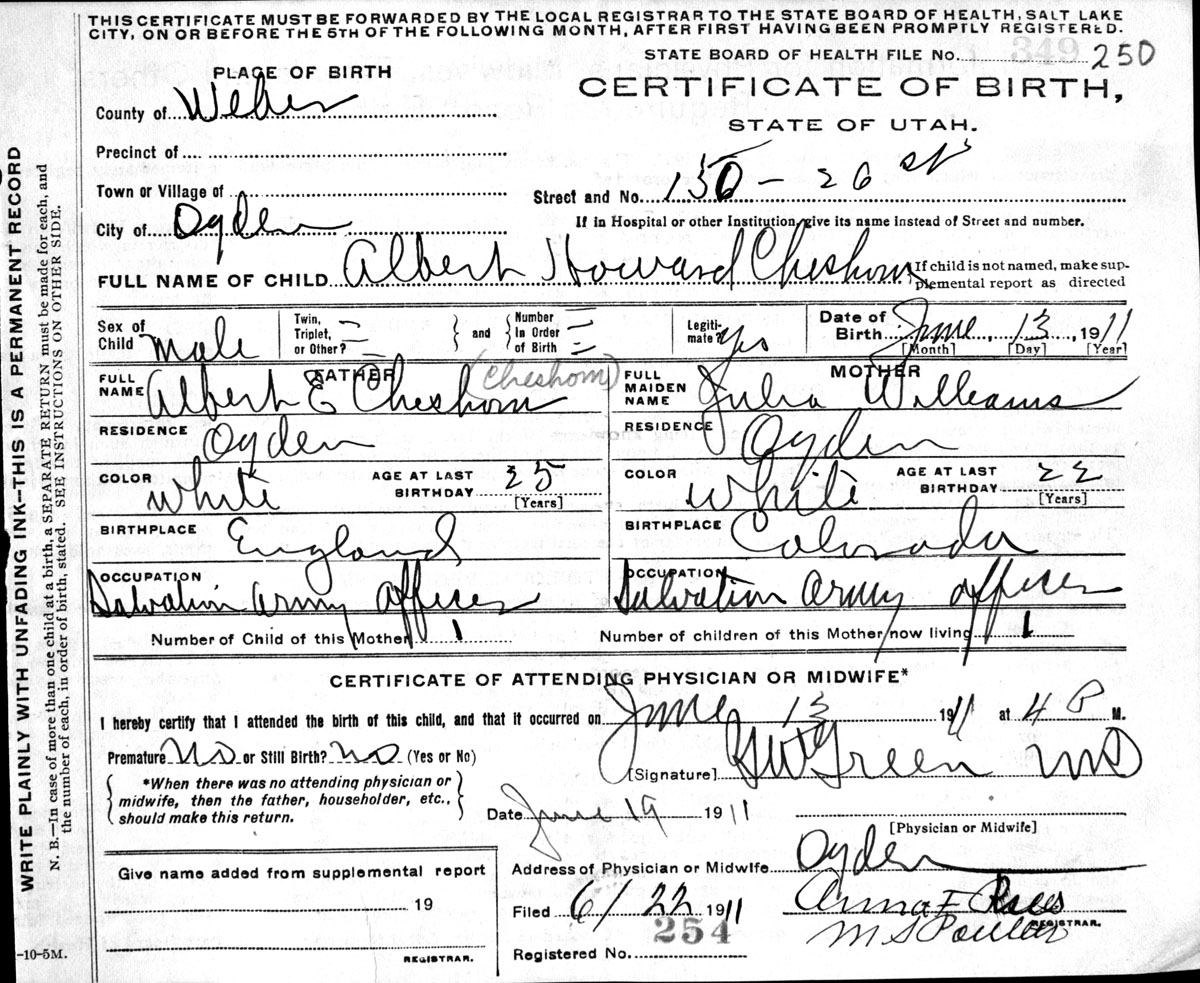 THIS CERTIFICATE MUST BE FORWARDED BY THE LOCAL REGISTRAR TO THE STATE BOARD OF HEALTH, SALT LAKE
CITY, ON OR BEFORE THE 5TH OF THE FOLLOWING MONTH, AFTER FIRST HAVING BEEN PROMPTLY REGISTERED.
STATE BOARD OF HEALTH FILE No. 349 250
PLACE OF BIRTH
CERTIFICATE OF BIRTH,
STATE OF UTAH.
County of Weber
Precinct of
Town or Village of
Street and No. 150 - 26 st
City of Ogden
If in Hospital or other Institution, give its name instead of Street and number.
FULL NAME OF CHILD Albert Howard Cheshom
If child is not named, make sup-
plemental report as directed
Sex of Child Male
Twin, Triplet, or Other?
and
Number In Order of Birth
Legiti-mate? Yes
Date of Birth June, 13, 1911
[Month] [Day] [Year]
FATHER
MOTHER
FULL NAME Albert E Cheshom (Cheshom)
FULL MAIDEN NAME Julia Williams
RESIDENCE Ogden
RESIDENCE Ogden
COLOR White AGE AT LAST BIRTHDAY 25 [Years]
COLOR White AGE AT LAST BIRTHDAY 22 [Years]
BIRTHPLACE England
BIRTHPLACE Colorado
OCCUPATION Salvation Army Officer
OCCUPATION Salvation Army Officer
Number of Child of this Mother 1
Number of children of this Mother now living 1
CERTIFICATE OF ATTENDING PHYSICIAN OR MIDWIFE*
I hereby certify that I attended the birth of this child, and that it occurred on June 13 1911 at 4 P M.
Premature No or Still Birth? No (Yes or No)
[Signature] Green MD
*When there was no attending physician or
midwife, then the father, householder, etc.,
should make this return.
Date June 19 1911
[Physician or Midwife]
Give name added from supplemental report
19
REGISTRAR.
Address of Physician or Midwife Ogden
Filed 6/22 1911 Anna F
REGISTRAR.
254
Registered No.
-10-5M.
WRITE PLAINLY WITH UNFADING INK—THIS IS A PERMANENT RECORD
N. B.—In case of more than one child at a birth, a SEPARATE RETURN must be made for each, and
the number of each, in order of birth, stated. SEE INSTRUCTIONS ON OTHER SIDE.